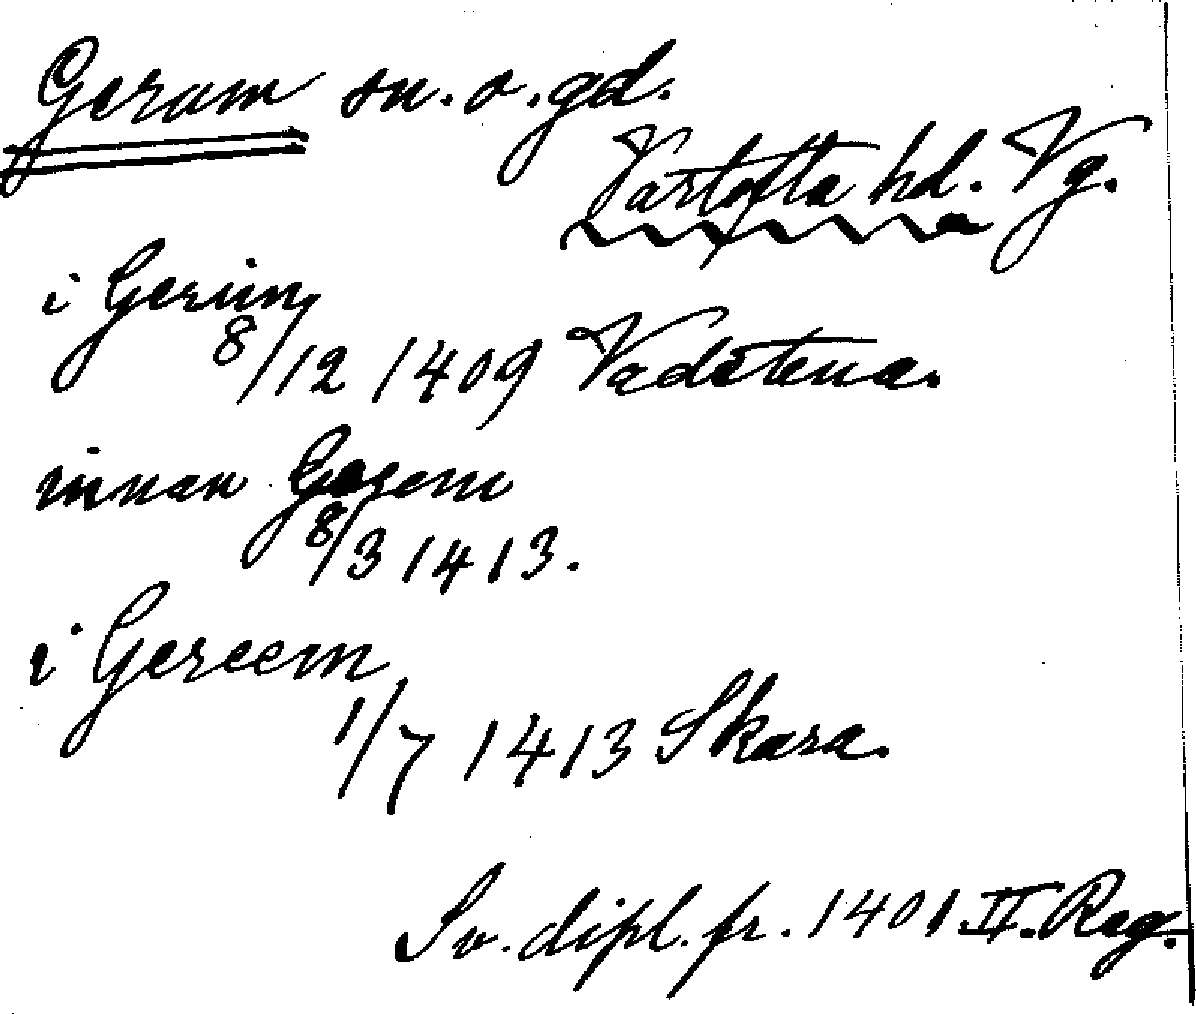 Gerum sn. o. gd.
Vartofta hd. Vg.
i Geriim
8/12 1409 Vadstena.
innan Gerem
8/3 1413.
i Gereem
1/7 1413 Skara.
Sv. dipl. fr. 1401 II. Reg.